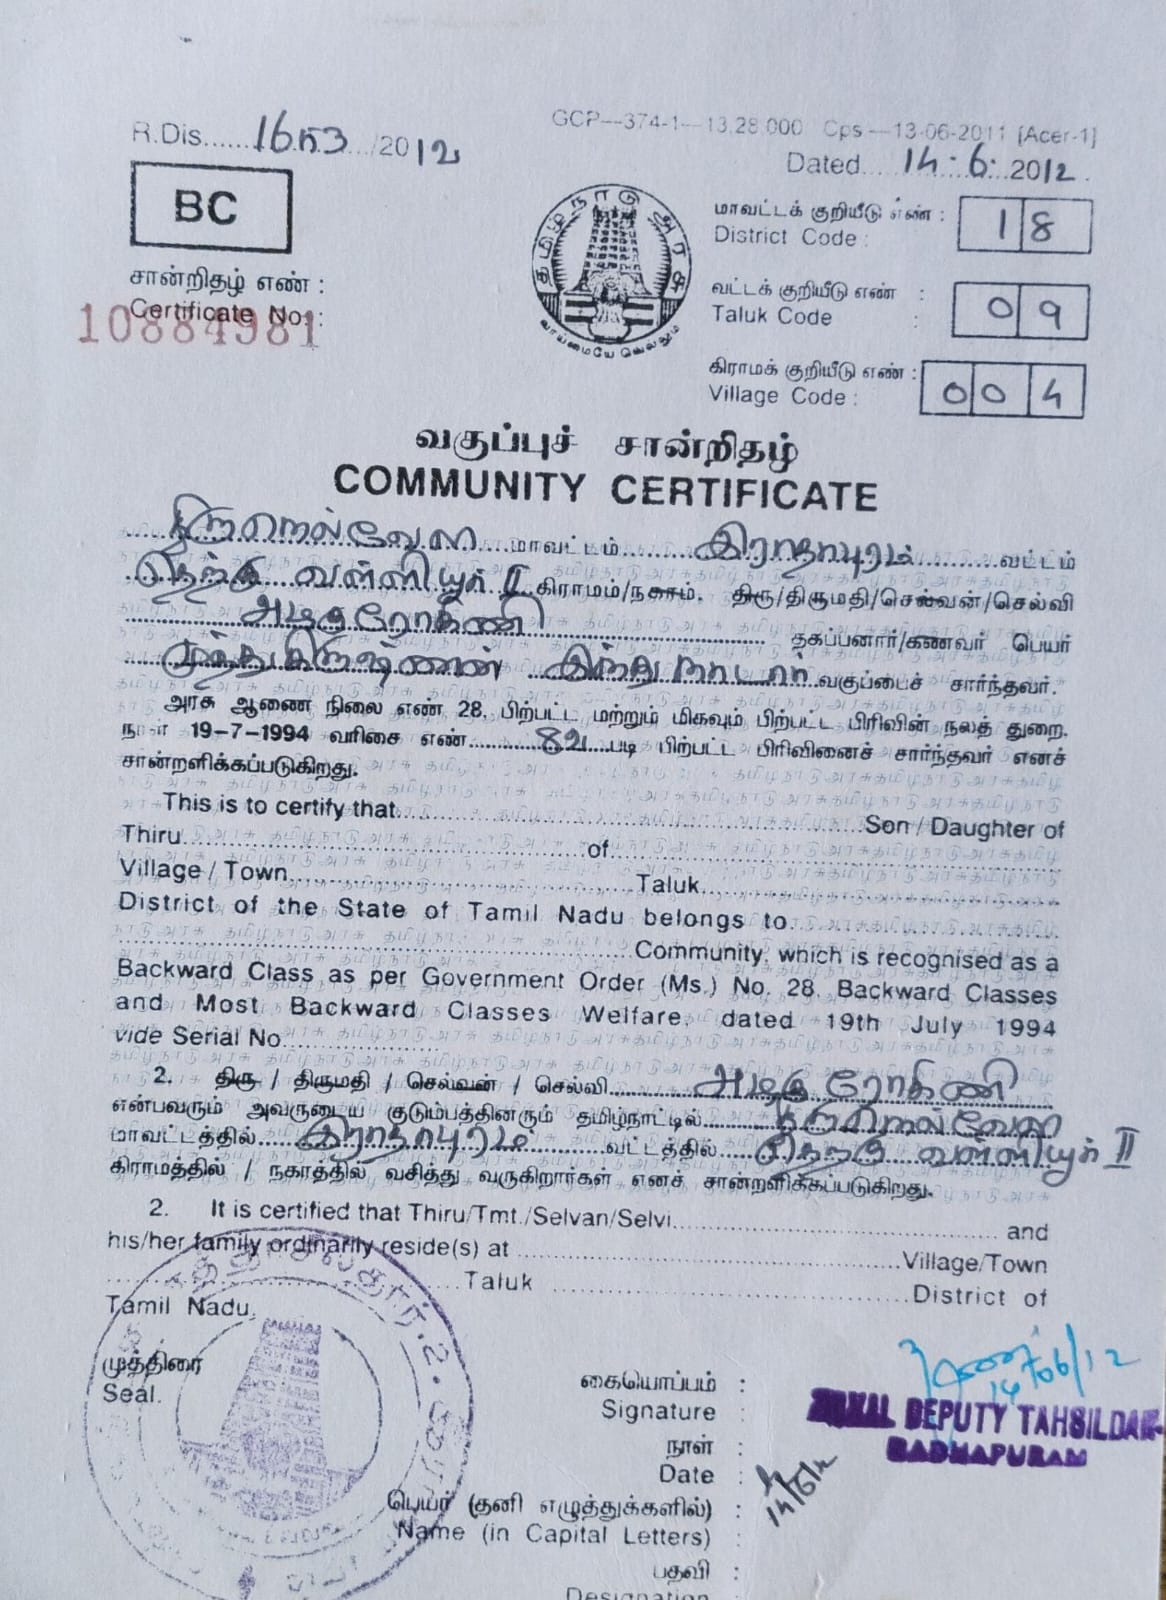 R.Dis......1653.../2012
GCP—374-1—13,28,000 Cps—13-06-2011 [Acer-1]
Dated....14.6...2012.
BC
தமிழ்நாடு அரசு
வாய்மையே வெல்லும்
மாவட்டக் குறியீடு எண் : 18
District Code :
சான்றிதழ் எண் :
Certificate No. :
10884981
வட்டக் குறியீடு எண் : 09
Taluk Code :
கிராமக் குறியீடு எண் : 004
Village Code :
வகுப்புச் சான்றிதழ்
COMMUNITY CERTIFICATE
திருநெல்வேலி மாவட்டம் இராதாபுரம் வட்டம்
தெற்கு வள்ளியூர் II கிராமம்/நகரம். திரு/திருமதி/செல்வன்/செல்வி
தகப்பனார்/கணவர் பெயர்
முத்துகிருஷ்ணன் இந்து நாடார் வகுப்பைச் சார்ந்தவர்.
அரசு ஆணை நிலை எண் 28, பிற்பட்ட மற்றும் மிகவும் பிற்பட்ட பிரிவின் நலத் துறை,
நாள் 19-7-1994 வரிசை எண் படி பிற்பட்ட பிரிவினைச் சார்ந்தவர் எனச்
சான்றளிக்கப்படுகிறது.
This is to certify that Son / Daughter of
Thiru of
Village / Town Taluk
District of the State of Tamil Nadu belongs to
Community, which is recognised as a
Backward Class as per Government Order (Ms.) No. 28, Backward Classes
and Most Backward Classes Welfare, dated 19th July 1994
vide Serial No
2. திரு / திருமதி / செல்வன் / செல்வி
என்பவரும் அவருடைய குடும்பத்தினரும் தமிழ்நாட்டில் திருநெல்வேலி
மாவட்டத்தில் இராதாபுரம் வட்டத்தில் தெற்கு வள்ளியூர் II
கிராமத்தில் / நகரத்தில் வசித்து வருகிறார்கள் எனச் சான்றளிக்கப்படுகிறது.
2. It is certified that Thiru/Tmt./Selvan/Selvi and
his/her family ordinarily reside(s) at Village/Town
Taluk District of
Tamil Nadu.
முத்திரை
Seal.
14/06/12
கையொப்பம் :
Signature :
ZONAL DEPUTY TAHSILDAR
RADHAPURAM
நாள் :
Date :
14/6/12
பெயர் (தனி எழுத்துக்களில்) :
Name (in Capital Letters) :
பதவி :
Designation